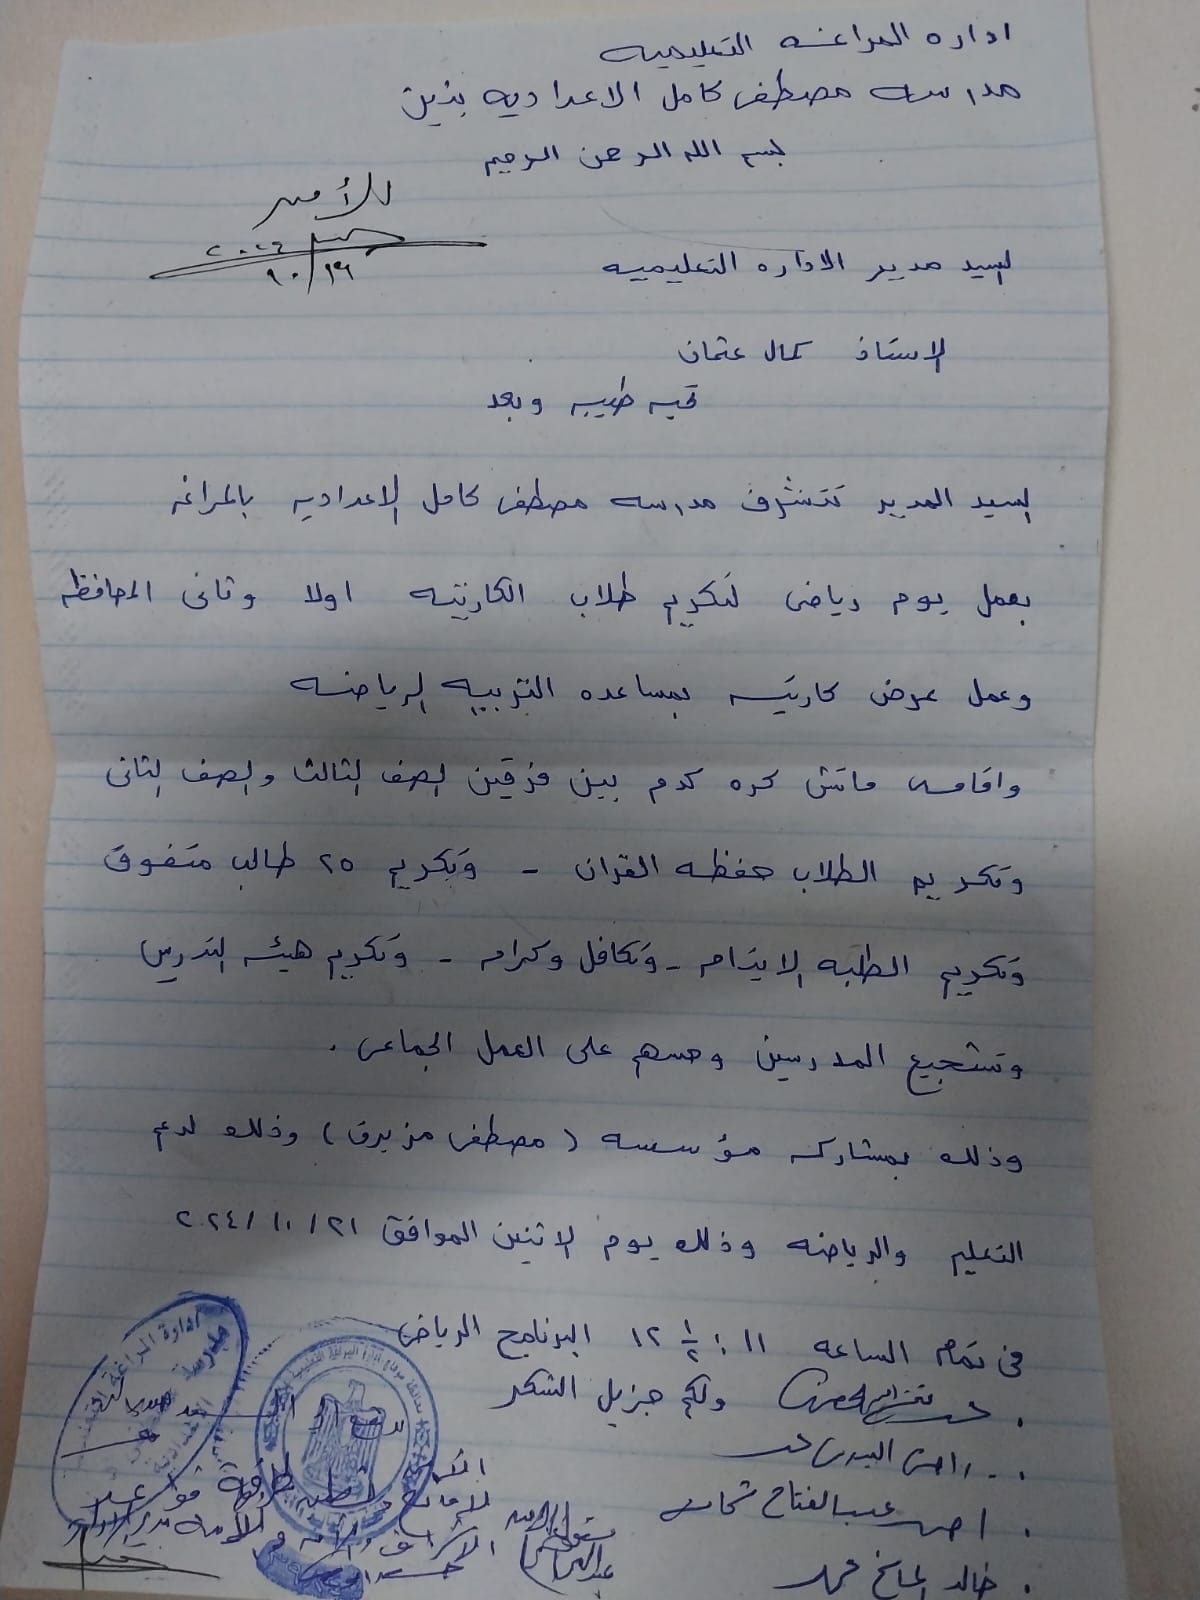 اداره المراغه التعليميه
مدرسه مصطفى كامل الاعداديه بنين
بسم الله الرحمن الرحيم
للأمن
٢٠٢٤
السيد مدير الاداره التعليميه
الاستاذ كمال عثمان
تحيه طيبه وبعد
السيد المدير تتشرف مدرسه مصطفى كامل الاعداديه بالمراغه
بعمل يوم رياضى لتكريم طلاب الكاريتيه اولا وثانى المحافظه
وعمل عرض كاريتيه بمساعده التربيه الرياضه
واقامه ماتش كره كدم بين فرقين الصف الثالث والصف الثانى
وتكريم الطلاب حفظه القران - وتكريم ٢٥ طالب متفوق
وتكريم الطلبه الايتام - وتكافل وكرامه - وتكريم هيئه التدريس
وتشجيع المدرسين وحسهم على العمل الجماعى .
وذلك بمشاركه مؤسسه (مصطفى مزيرق) وذلك لدعم
التعليم والرياضه وذلك يوم الاتنين الموافق ٢٠٢٤/١٠/٢١
فى تمام الساعه ١١ : ١٢ ١/٢ البرنامج الرياضى
ولكم جزيل الشكر
احمد عبدالفتاح شحات
خالد محمد